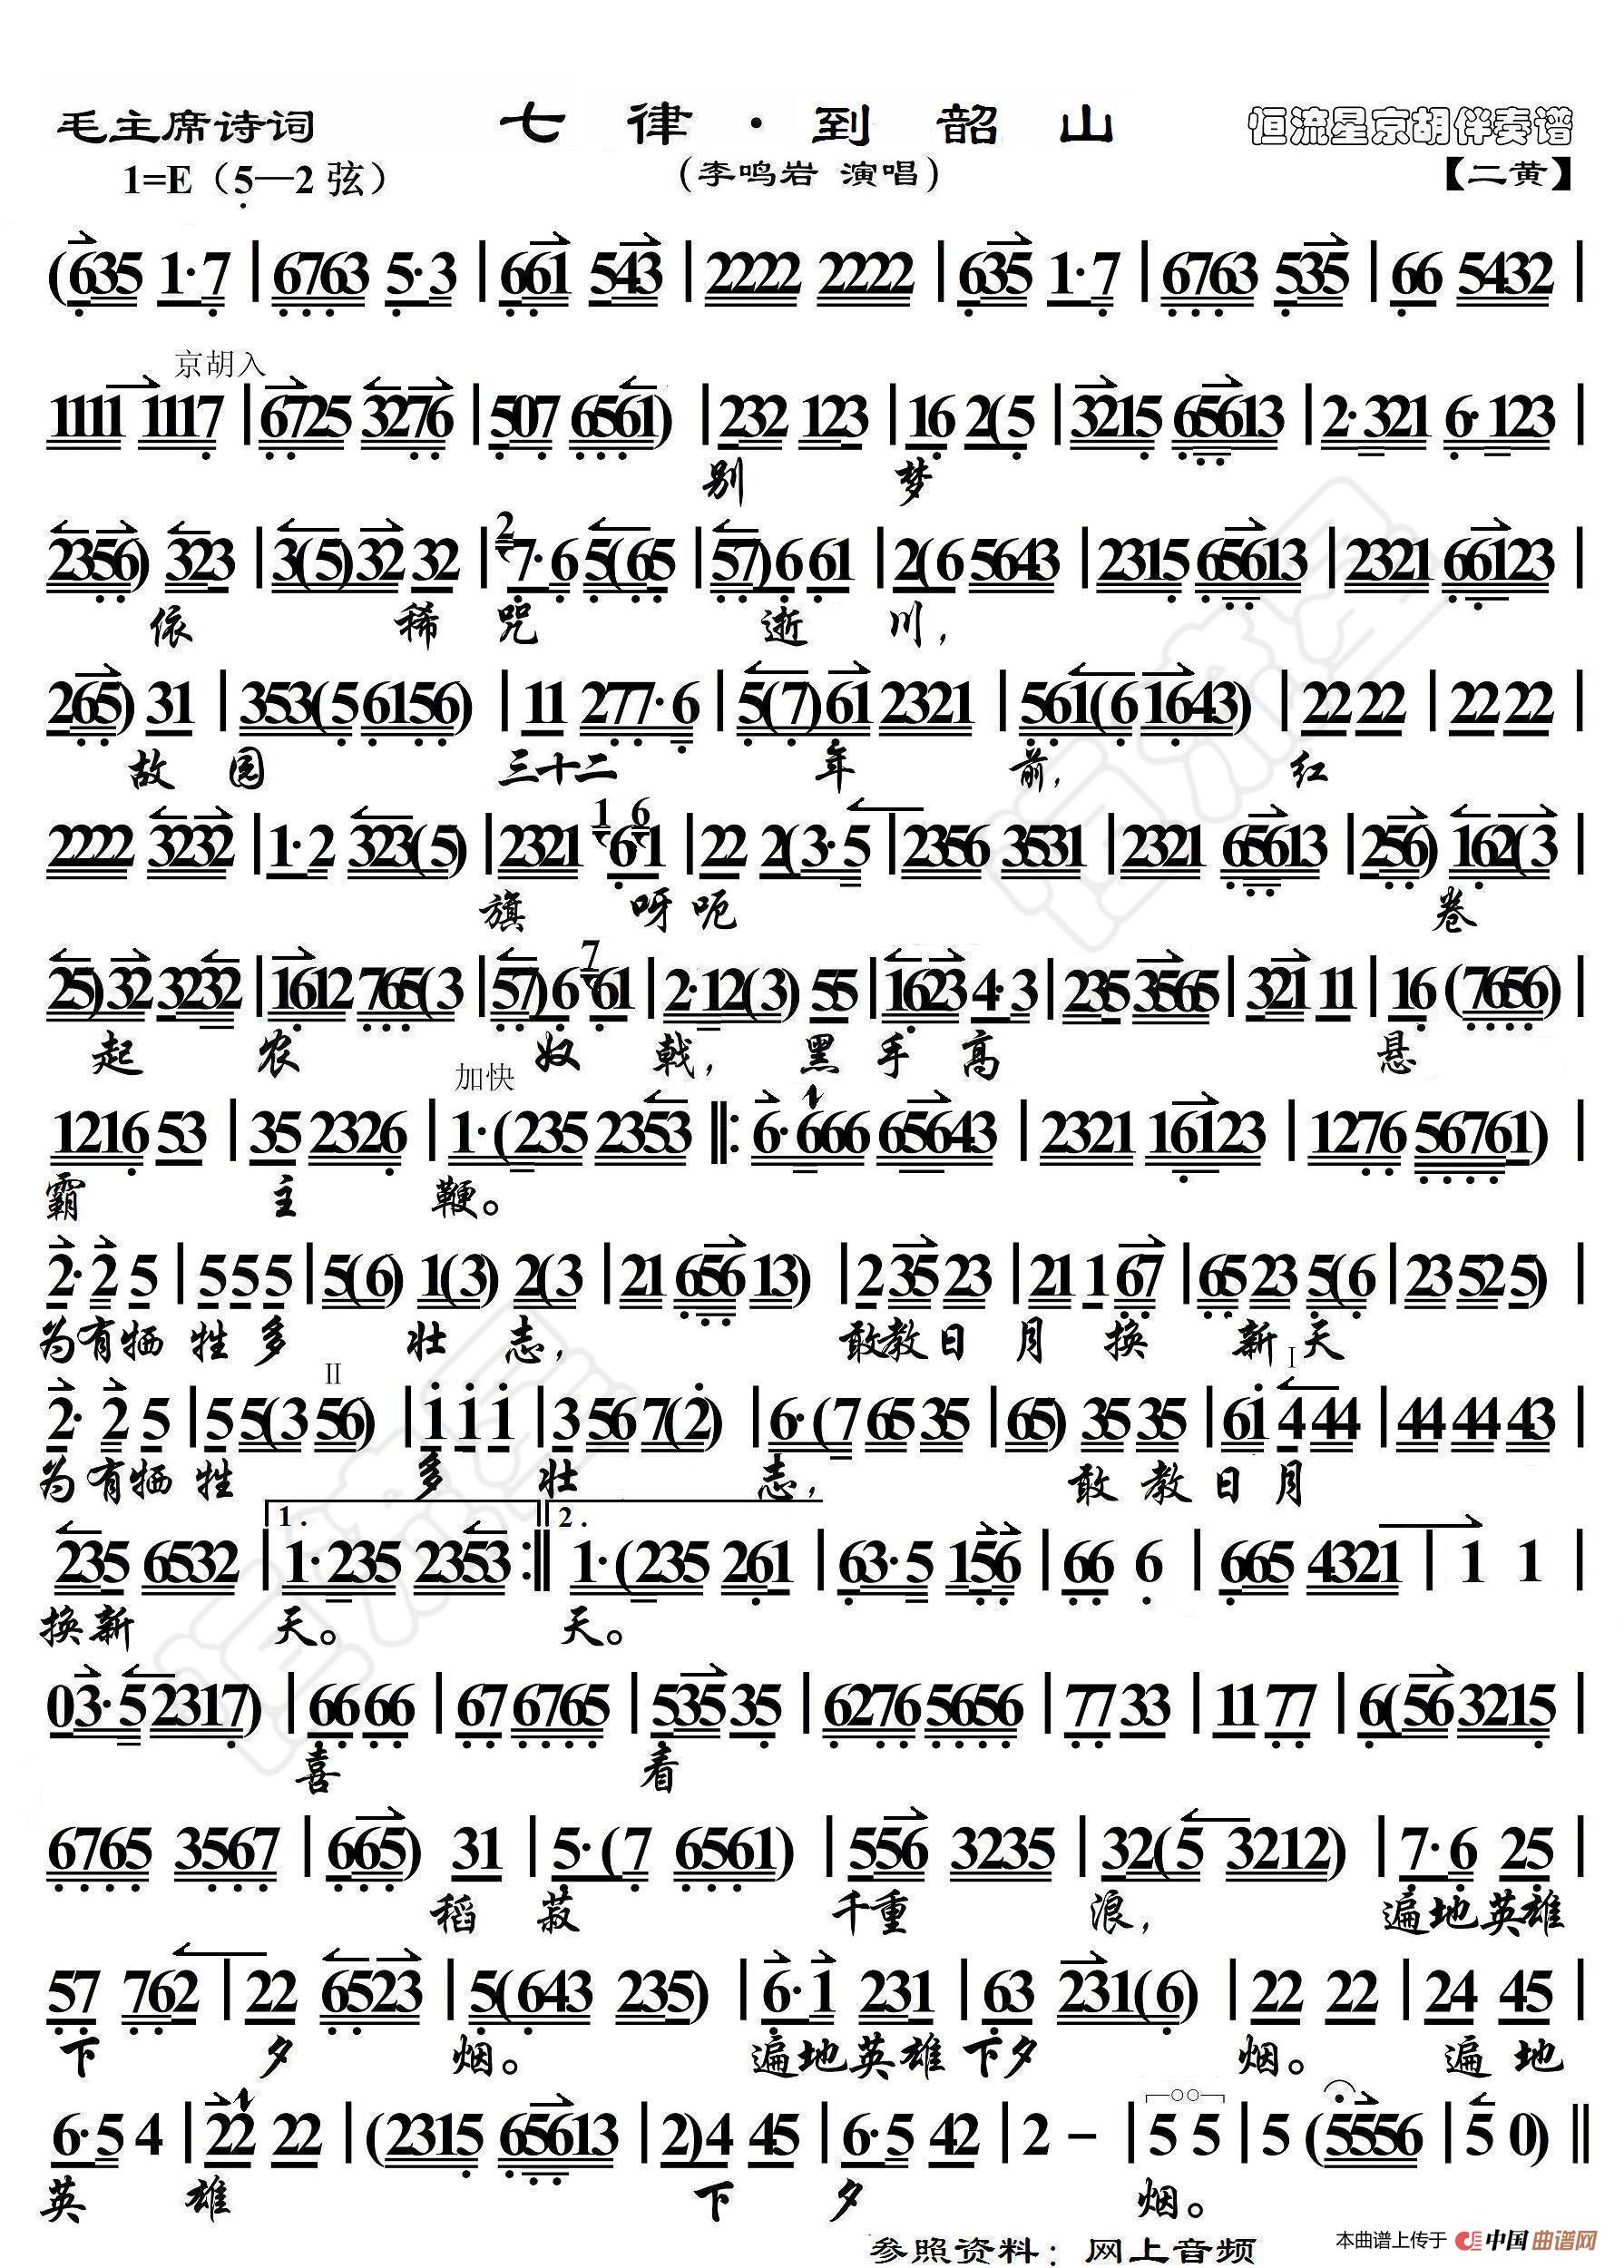 毛主席诗词 七律·到韶山 恒流星京胡伴奏谱
1=E（5—2弦） （李鸣岩 演唱） 【二黄】
(635 1·7 | 6763 5·3 | 661 543 | 2222 2222 | 635 1·7 | 6763 535 | 66 5432 |
京胡入
1111 1117 | 6725 3276 | 507 6561) | 232 123 | 16 2(5 | 3215 65613 | 2·321 6·123 |
别 梦
2356) 323 | 3(5)32 32 | 2 7·6 5(65 | 57)6 61 | 2(6 5643 | 2315 65613 | 2321 66123 |
依 稀 咒 逝 川，
265) 31 | 353(5 6156) | 11 277·6 | 5(7)61 2321 | 561(6 1643) | 22 22 | 22 22 |
故 园 三十二 年 前， 红
2222 3232 | 1·2 323(5) | 2321 1 6 6 1 | 22 2(3·5 | 2356 3531 | 2321 65613 | 256) 162(3 |
旗 呀 呃 卷
25)32 3232 | 1612 765(3 | 57)6 7 61 | 2·12(3) 55 | 1623 4·3 | 235 3565 | 321 11 | 16 (7656) |
起 农 奴 戟， 黑 手 高 悬
加快
1216 53 | 35 2326 | 1·(235 2353 ‖: 6·666 65643 | 2321 16123 | 1276 56761) |
霸 主 鞭。
2·2 5 | 5 5 5 | 5(6) 1(3) 2(3 | 21 656 13) | 2 35 23 | 21 1 67 | 65 23 5(6 | 23 52 5) |
为有牺 牲 多 壮 志， 敢教日 月 换 新 天
II I
2· 2 5 | 5 5(3 56) | 1 1 1 | 3 56 7(2) | 6·(7 65 35 | 65) 35 35 | 61 4 44 | 44 44 43 |
为有牺 牲 多 壮 志， 敢 教 日 月
1. 2.
235 6532 | 1·235 2353 :‖ 1·(235 261 | 63·5 156 | 66 6 | 665 4321 | 1 1 |
换新 天。 天。
03·5 2317) | 66 66 | 67 6765 | 535 35 | 6276 5656 | 77 33 | 11 77 | 6(56 3215 |
喜 看
6765 3567 | 665) 31 | 5·(7 6561) | 556 3235 | 32(5 3212) | 7·6 25 |
稻 菽 千重 浪， 遍地英雄
57 762 | 22 6523 | 5(643 235) | 6·1 231 | 63 231(6) | 22 22 | 24 45 |
下 夕 烟。 遍地英雄 下夕 烟。 遍 地
6·5 4 | 22 22 | (2315 65613 | 2)4 45 | 6·5 42 | 2 - | 5 5 | 5 (5556 | 5 0) ‖
英 雄 下 夕 烟。
参照资料：网上音频
本曲谱上传于 中国曲谱网
恒流星
恒流星